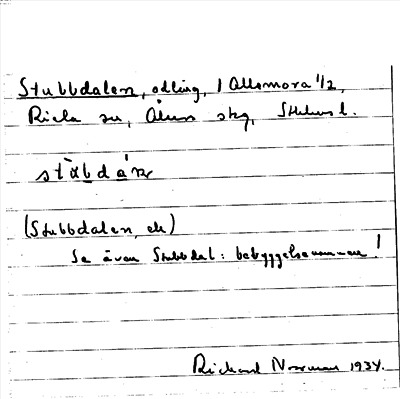 Stubbdalen, odling, 1 Allsmora 1/2,
Riala sn, Åkers skg, Sthlms l.
stàbdán
(Stubbdalen, ek)
Se även Stubbdal: bebyggelsenamnen!
Richard Norrman 1934.